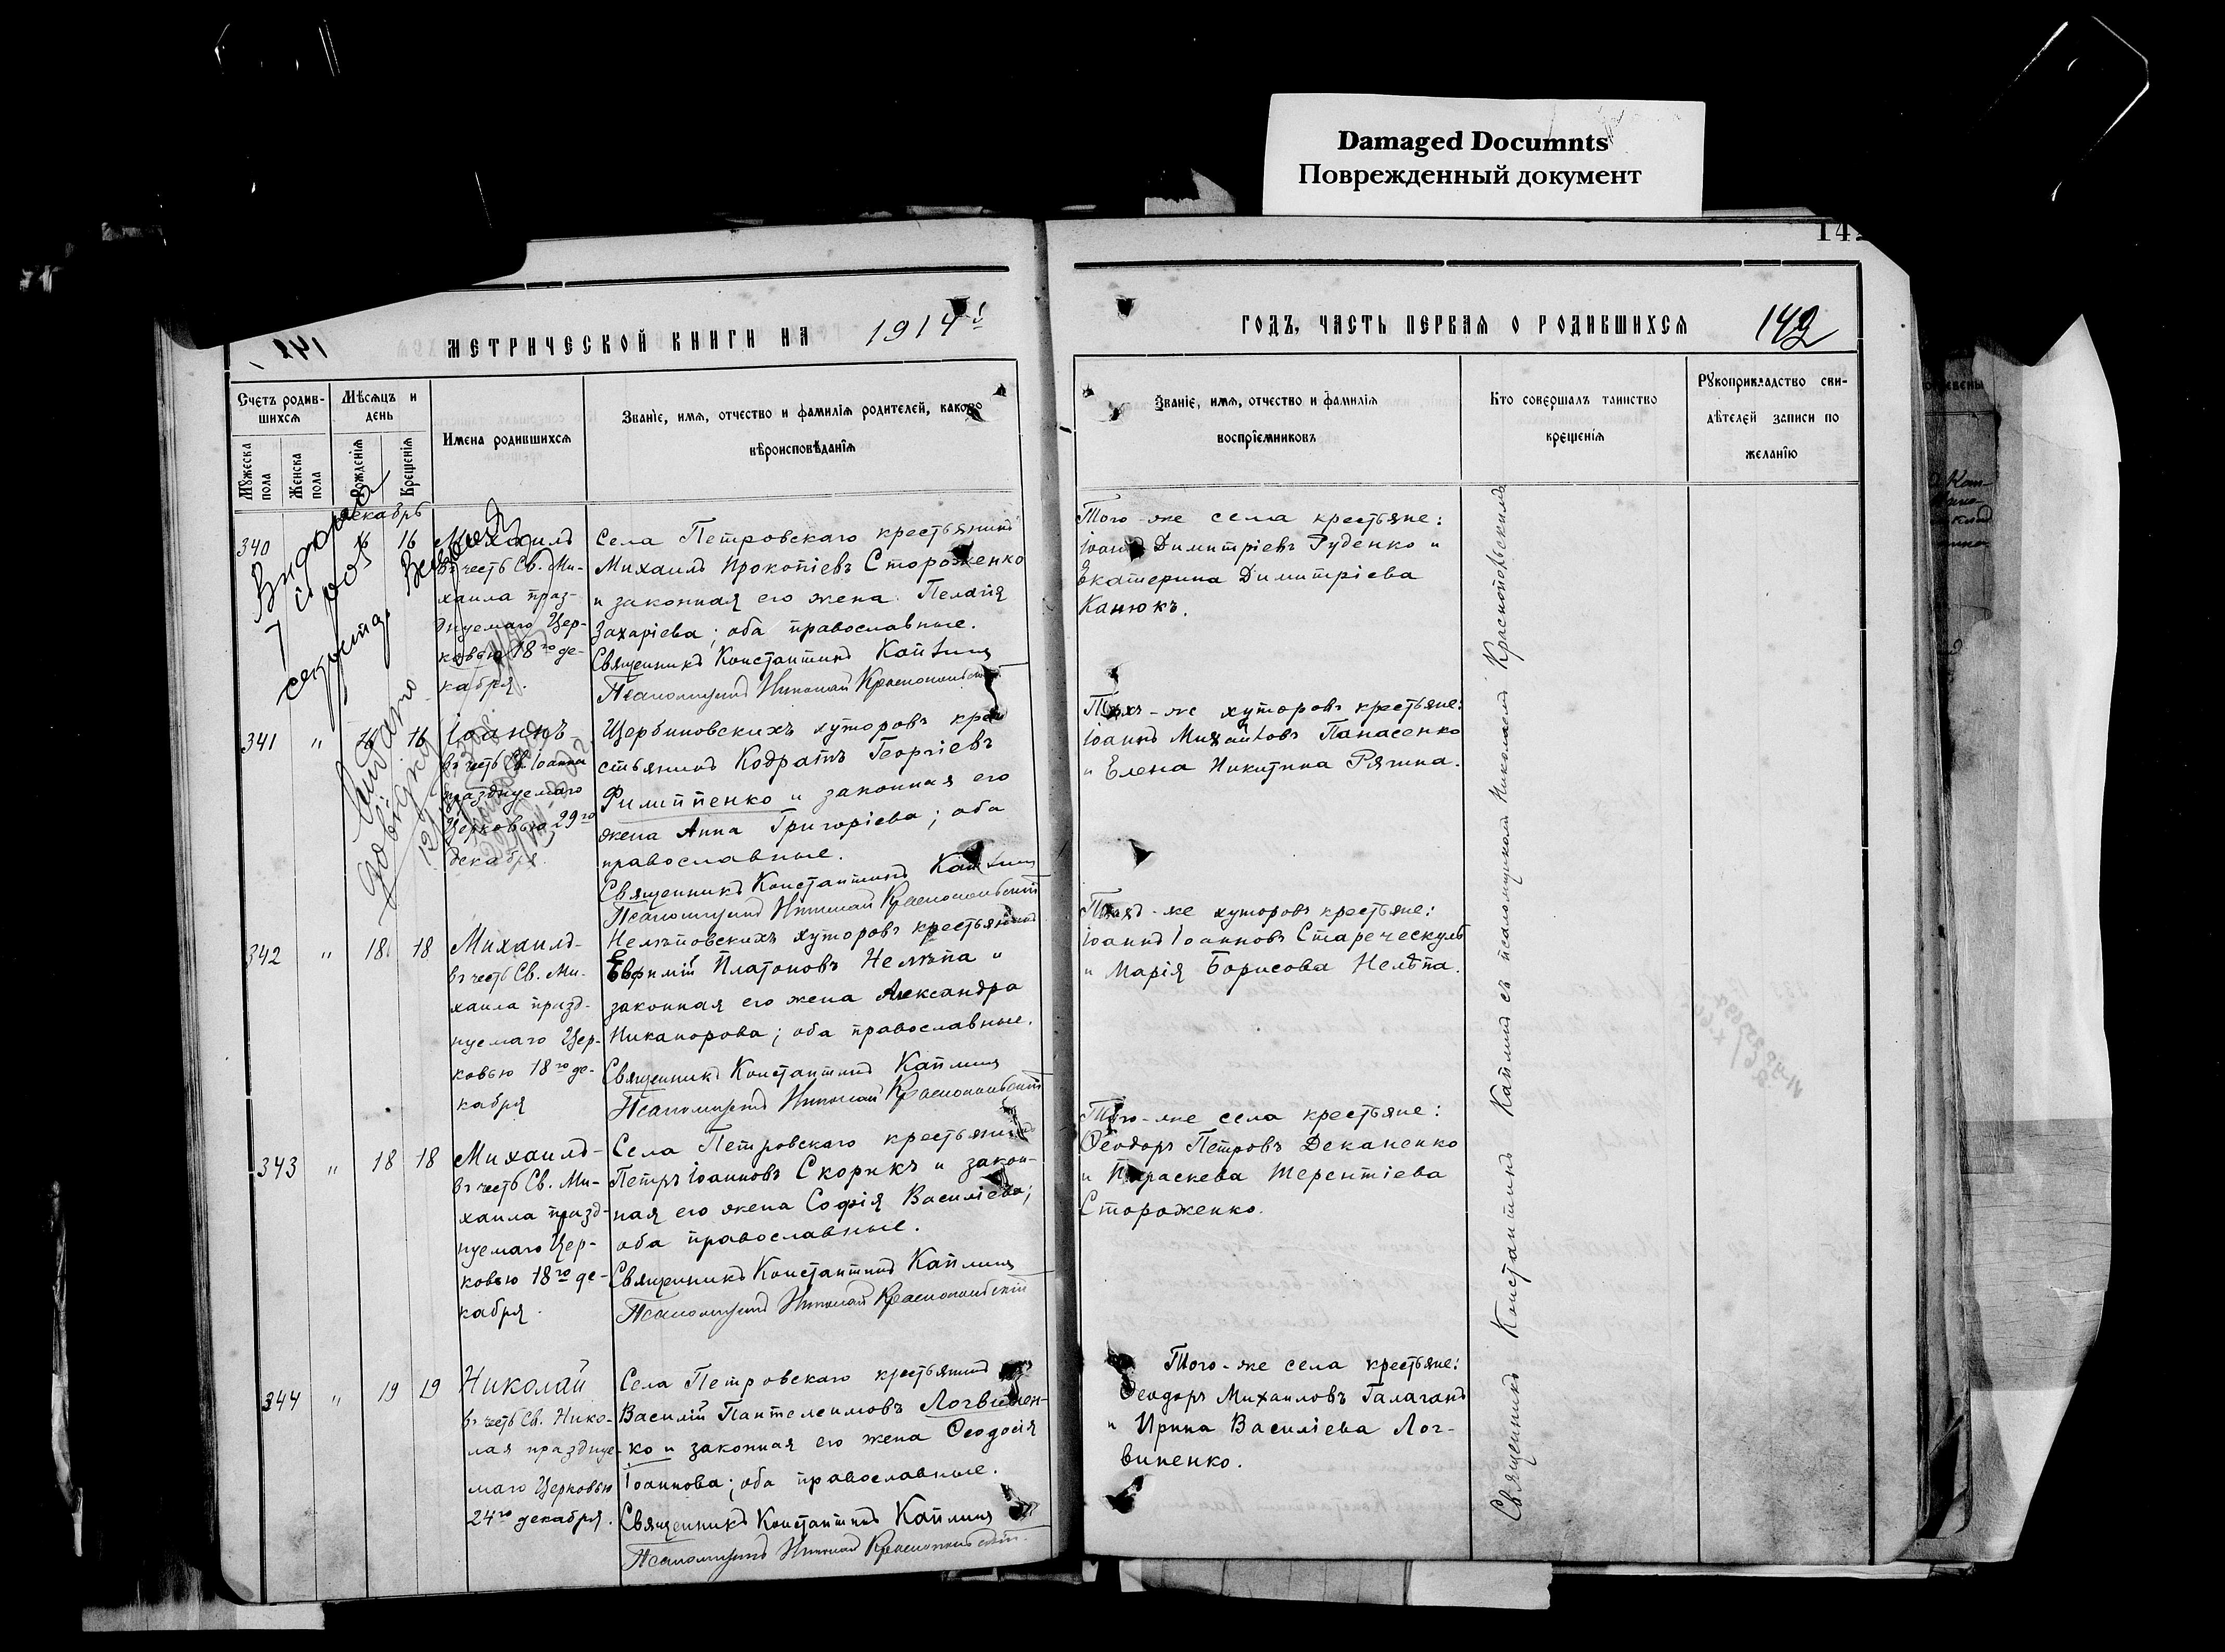 Damaged Documnts
Поврежденный документ
141
МЕТРИЧЕСКОЙ КНИГИ НА 1914й
Счетъ родив-
шихся
Мѣсяцъ и
день
Имена родившихся
Званіе, имя, отчество и фамилія родителей, какого
вѣроисповѣданія
Мꙋжеска
пола
Женска
пола
Рожденія
Крещенія
декабрь
340
16
16
Михаилъ
въ честь Св. Ми-
хаила празд-
днуемаго Цер-
ковью 18го де-
кабря.
Села Петровскаго крестьянинъ
Михаилъ Прокопіевъ Стороженко
и законная его жена Пелагія
Захаріева; оба православные.
Священникъ Константинъ Каплинъ
Псаломщикъ Николай Краснопольскій
341
"
16
16
Іоаннъ
въ честь Св. Іоанна
празднуемаго
Церковью 29го
декабря
Щербиновскихъ хуторовъ кре
стьянинъ Кодратъ Георгіевъ
Филиппенко и законная его
жена Анна Григоріева; оба
православные.
Священникъ Константинъ Каплинъ
Псаломщикъ Николай Краснопольскій
342
"
18
18
Михаилъ-
въ честь Св. Ми-
хаила празд-
нуемаго Цер-
ковью 18го де-
кабря
Нелѣповскихъ хуторовъ крестьянинъ
Евфимій Платоновъ Нелѣпа и
законная его жена Александра
Никанорова; оба православные.
Священникъ Константинъ Каплинъ
Псаломщикъ Николай Краснопольскій
343
"
18
18
Михаилъ-
въ честь Св. Ми-
хаила празд-
нуемаго Цер-
ковью 18го де-
кабря.
Села Петровскаго крестьянинъ
Петръ Іоанновъ Скорикъ и закон-
ная его жена Софія Василіева;
оба православные.
Священникъ Константинъ Каплинъ
Псаломщикъ Николай Краснопольскій
344
"
19
19
Николай
въ честь Св. Нико-
лая празднуе-
маго Церковью
24го декабря.
Села Петровскаго крестьянинъ
Василій Пантелеимовъ Логвинен-
ко и законная его жена Феодосія
Іоаннова; оба православные.
Священникъ Константинъ Каплинъ
Псаломщикъ Николай Краснопольскій
14
ГОДЪ, ЧАСТЬ ПЕРВАЯ О РОДИВШИХСЯ
142
Званіе, имя, отчество и фамилія
воспріемниковъ
Кто совершалъ таинство
крещенія
Рꙋкоприкладство сви-
дѣтелей записи по
желанію
Того-же села крестьяне:
Іоаннъ Димитріевъ Руденко и
Екатерина Димитріева
Канюкъ.
Тѣхъ-же хуторовъ крестьяне:
Іоаннъ Михайловъ Панасенко
и Елена Никитина Ряшна.
Тѣхъ-же хуторовъ крестьяне:
Іоаннъ Іоанновъ Стареческулъ
и Марія Борисова Нелѣпа.
Того-же села крестьяне:
Феодоръ Петровъ Деканенко
и Параскева Терентіева
Стороженко.
Того-же села крестьяне:
Феодоръ Михаиловъ Галаганъ
и Ирина Василіева Лог-
виненко.
Священникъ Константинъ Каплинъ съ псаломщикомъ Николаемъ Краснопольскимъ